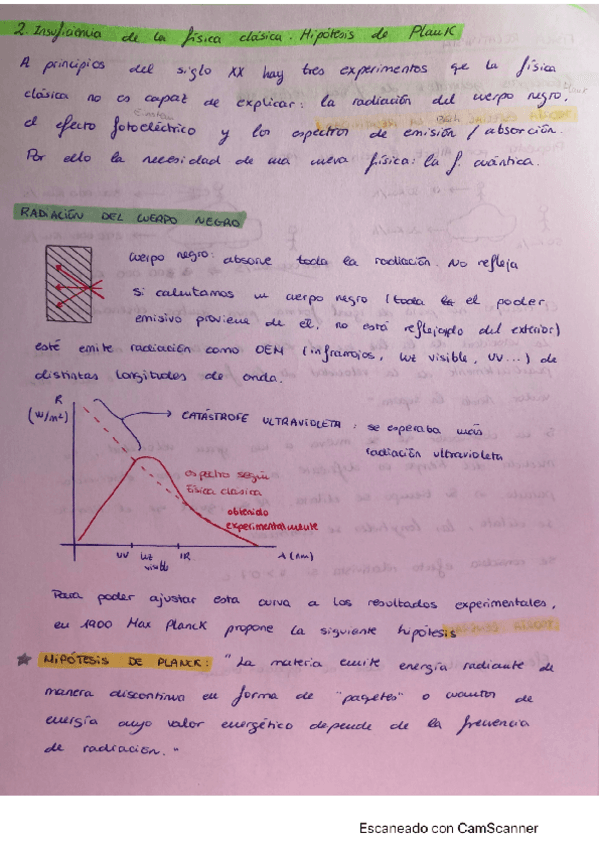 2. Insuficiencia de la física clásica. Hipótesis de Planck
A principios del siglo XX hay tres experimentos que la física
clásica no es capaz de explicar: la radiación del cuerpo negro,
Planck
Einstein
el efecto fotoeléctrico y los espectros de emisión / absorción.
Por ello la necesidad de una nueva física: la f. cuántica.
RADIACIÓN DEL CUERPO NEGRO
cuerpo negro: absorve toda la radiación. No refleja
Si calentamos un cuerpo negro (toda el poder
emisivo proviene de él, no está reflejando del exterior)
esté emite radiación como OEM (infrarrojos, luz visible, UV...) de
distintas longitudes de onda.
R
(W/m²)
CATÁSTROFE ULTRAVIOLETA : se esperaba más
radiación ultravioleta
espectro según
física clásica
obtenido
experimentalmente
UV luz visible IR λ (nm)
Para poder ajustar esta curva a los resultados experimentales,
en 1900 Max Planck propone la siguiente hipótesis
HIPÓTESIS DE PLANCK: "La materia emite energía radiante de
manera discontinua en forma de "paquetes" o cuantos de
energía cuyo valor energético depende de la frecuencia
de radiación."
Escaneado con CamScanner